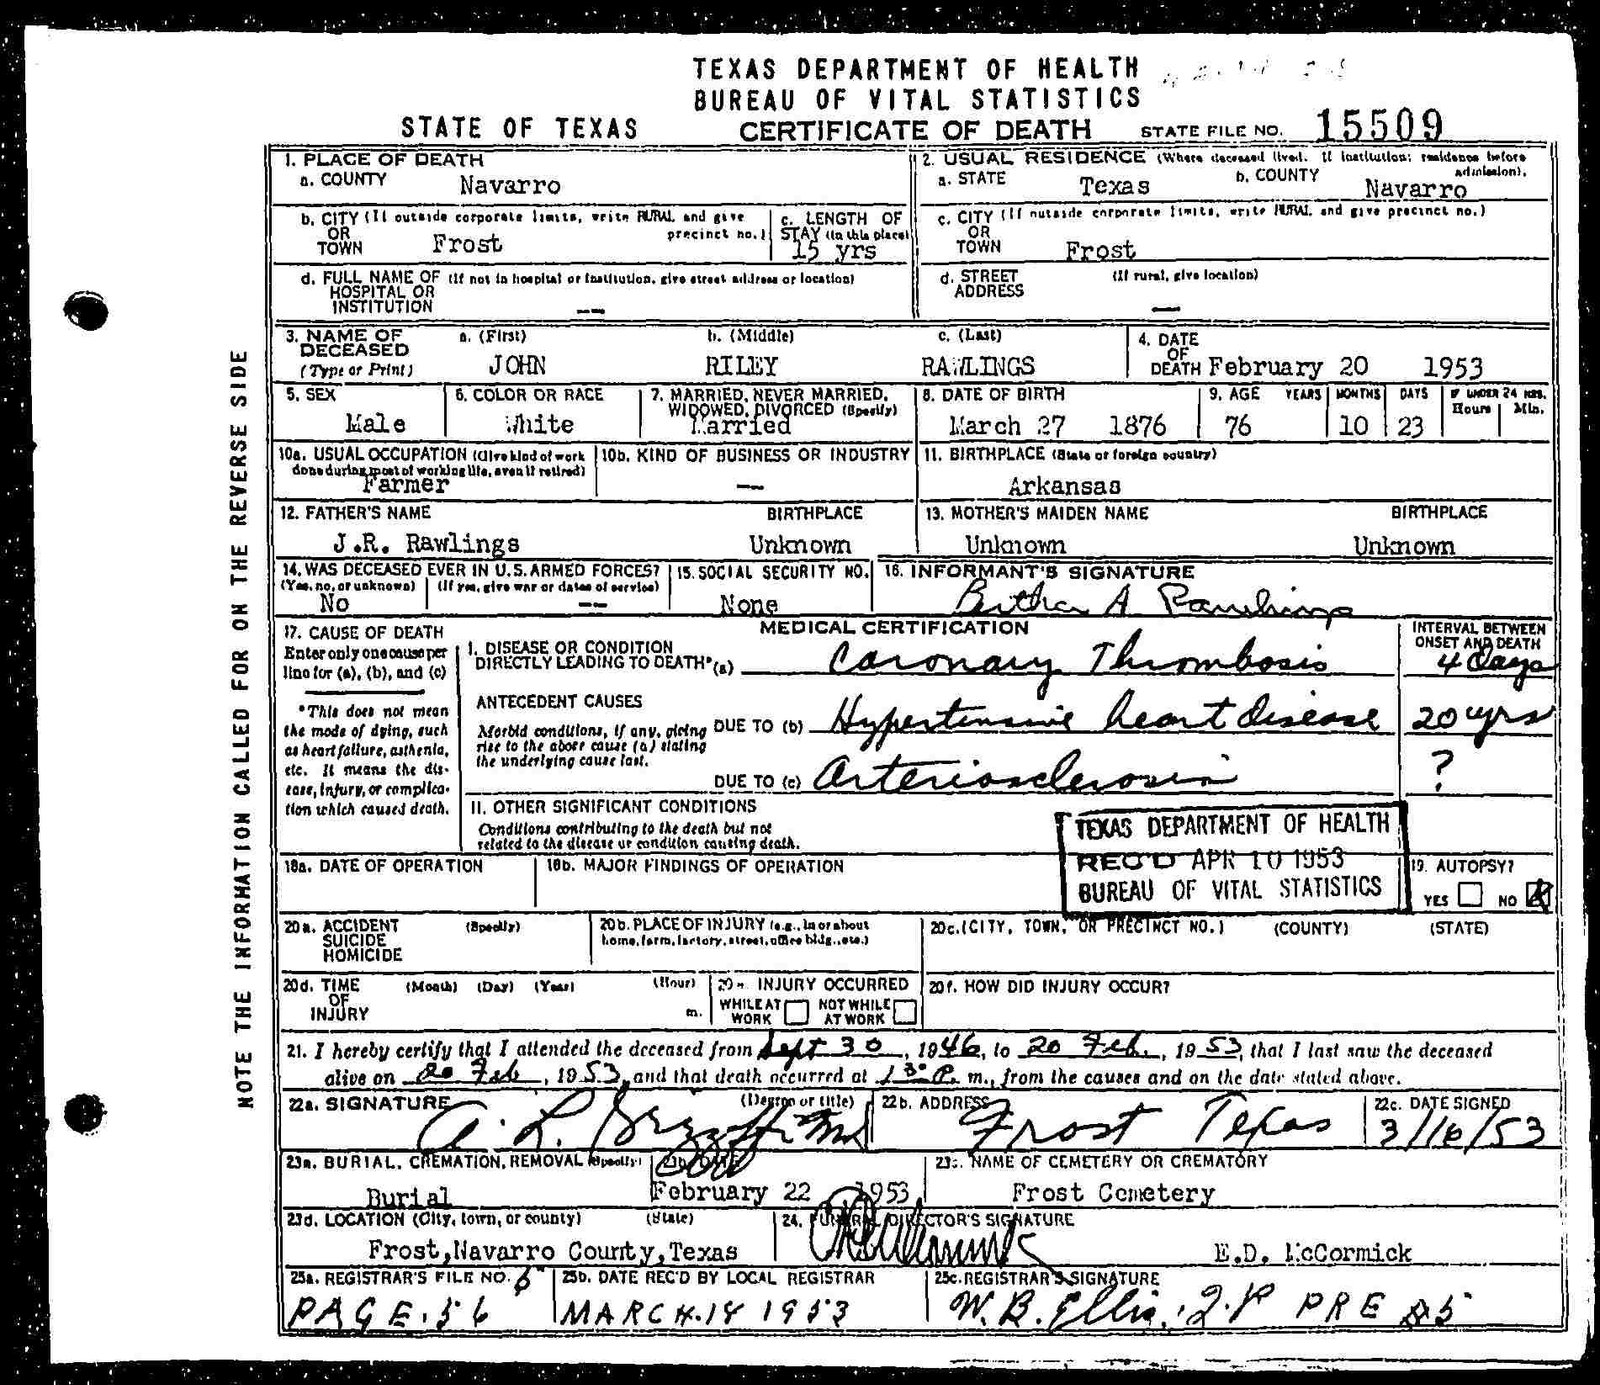 TEXAS DEPARTMENT OF HEALTH
BUREAU OF VITAL STATISTICS
STATE OF TEXAS CERTIFICATE OF DEATH STATE FILE NO. 15509
NOTE THE INFORMATION CALLED FOR ON THE REVERSE SIDE
1. PLACE OF DEATH
a. COUNTY Navarro
2. USUAL RESIDENCE (Where deceased lived. If institution: residence before admission).
a. STATE Texas b. COUNTY Navarro
b. CITY (If outside corporate limits, write RURAL and give precinct no.)
OR
TOWN Frost
c. LENGTH OF
STAY (in this place)
15 yrs
c. CITY (If outside corporate limits, write RURAL and give precinct no.)
OR
TOWN Frost
d. FULL NAME OF (If not in hospital or institution, give street address or location)
HOSPITAL OR
INSTITUTION --
d. STREET (If rural, give location)
ADDRESS —
3. NAME OF DECEASED (Type or Print)
a. (First) b. (Middle) c. (Last)
JOHN RILEY RAWLINGS
4. DATE OF DEATH February 20 1953
5. SEX
Male
6. COLOR OR RACE
White
7. MARRIED, NEVER MARRIED,
WIDOWED, DIVORCED (Specify)
Married
8. DATE OF BIRTH
March 27 1876
9. AGE YEARS MONTHS DAYS IF UNDER 24 HRS.
Hours Min.
76 10 23
10a. USUAL OCCUPATION (Give kind of work
done during most of working life, even if retired)
Farmer
10b. KIND OF BUSINESS OR INDUSTRY
--
11. BIRTHPLACE (State or foreign country)
Arkansas
12. FATHER'S NAME BIRTHPLACE
J.R. Rawlings Unknown
13. MOTHER'S MAIDEN NAME BIRTHPLACE
Unknown Unknown
14. WAS DECEASED EVER IN U.S. ARMED FORCES?
(Yes, no, or unknown) (If yes, give war or dates of service)
No --
15. SOCIAL SECURITY NO.
None
16. INFORMANT'S SIGNATURE
Bertha A Rawlings
17. CAUSE OF DEATH
Enter only one cause per
line for (a), (b), and (c)
*This does not mean
the mode of dying, such
as heart failure, asthenia,
etc. It means the dis-
ease, injury, or complica-
tion which caused death.
MEDICAL CERTIFICATION
INTERVAL BETWEEN
ONSET AND DEATH
I. DISEASE OR CONDITION
DIRECTLY LEADING TO DEATH* (a) Coronary Thrombosis 4 days
ANTECEDENT CAUSES
Morbid conditions, if any, giving
rise to the above cause (a) stating
the underlying cause last.
DUE TO (b) Hypertensive heart disease 20 yrs
DUE TO (c) Arteriosclerosis ?
II. OTHER SIGNIFICANT CONDITIONS
Conditions contributing to the death but not
related to the disease or condition causing death.
TEXAS DEPARTMENT OF HEALTH
REC'D APR 10 1953
BUREAU OF VITAL STATISTICS
18a. DATE OF OPERATION
18b. MAJOR FINDINGS OF OPERATION
19. AUTOPSY?
YES NO X
20a. ACCIDENT (Specify)
SUICIDE
HOMICIDE
20b. PLACE OF INJURY (e.g., in or about
home, farm, factory, street, office bldg., etc.)
20c. (CITY, TOWN, OR PRECINCT NO.) (COUNTY) (STATE)
20d. TIME (Month) (Day) (Year) (Hour)
OF
INJURY m.
20e. INJURY OCCURRED
WHILE AT WORK NOT WHILE AT WORK
20f. HOW DID INJURY OCCUR?
21. I hereby certify that I attended the deceased from Sept 30, 1946, to 20 Feb., 1953, that I last saw the deceased
alive on 20 Feb, 1953, and that death occurred at 1 30 P. m., from the causes and on the date stated above.
22a. SIGNATURE (Degree or title)
A. L. MD
22b. ADDRESS
Frost Texas
22c. DATE SIGNED
3/16/53
23a. BURIAL, CREMATION, REMOVAL (Specify)
Burial
23b. DATE
February 22 1953
23c. NAME OF CEMETERY OR CREMATORY
Frost Cemetery
23d. LOCATION (City, town, or county) (State)
Frost, Navarro County, Texas
24. FUNERAL DIRECTOR'S SIGNATURE
E.D. McCormick
25a. REGISTRAR'S FILE NO. 6
PAGE. 56
25b. DATE REC'D BY LOCAL REGISTRAR
MARCH. 18 1953
25c. REGISTRAR'S SIGNATURE
W. B. Ellis. J.P PRE 5